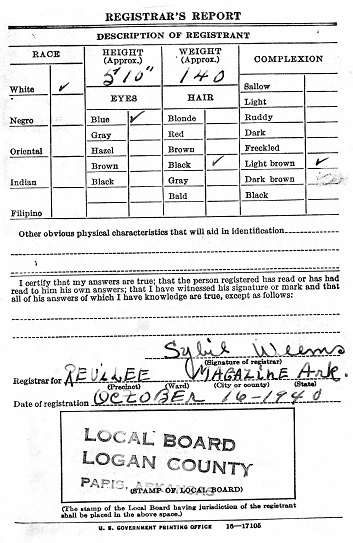 REGISTRAR'S REPORT
DESCRIPTION OF REGISTRANT
RACE HEIGHT (Approx.) WEIGHT (Approx.) COMPLEXION
5'10" 140
White ✓ Sallow
EYES HAIR Light
Negro Blue ✓ Blonde Ruddy
Gray Red Dark
Oriental Hazel Brown Freckled
Brown Black ✓ Light brown ✓
Indian Black Gray Dark brown
Bald Black
Filipino
Other obvious physical characteristics that will aid in identification
I certify that my answers are true; that the person registered has read or has had
read to him his own answers; that I have witnessed his signature or mark and that
all of his answers of which I have knowledge are true, except as follows:
Sybil Weems
(Signature of registrar)
Registrar for REVILEE MAGAZINE Ark.
(Precinct) (Ward) (City or county) (State)
Date of registration OCTOBER 16-1940
LOCAL BOARD
LOGAN COUNTY
PARIS, ARKANSAS
(STAMP OF LOCAL BOARD)
(The stamp of the Local Board having jurisdiction of the registrant
shall be placed in the above space.)
U. S. GOVERNMENT PRINTING OFFICE 16—17105